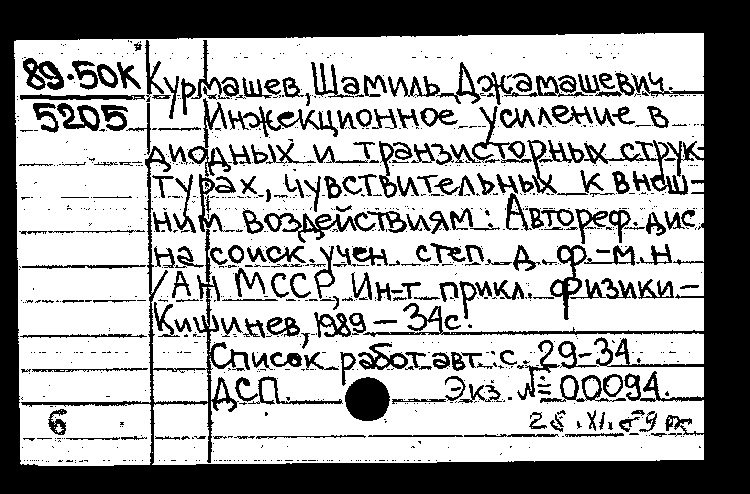 89-50К Курмашев, Шамиль Джамашевич.
5205 Инжекционное усиление в
диодных и транзисторных струк-
турах, чувствительных к внеш-
ним воздействиям: Автореф. дис.
на соиск. учен. степ. д. ф.-м. н.
/АН МССР, Ин-т прикл. физики.-
Кишинев, 1989 - 34с.
Список работ авт.: с. 29-34.
ДСП. Экз. № 00094.
6 28.XI.89